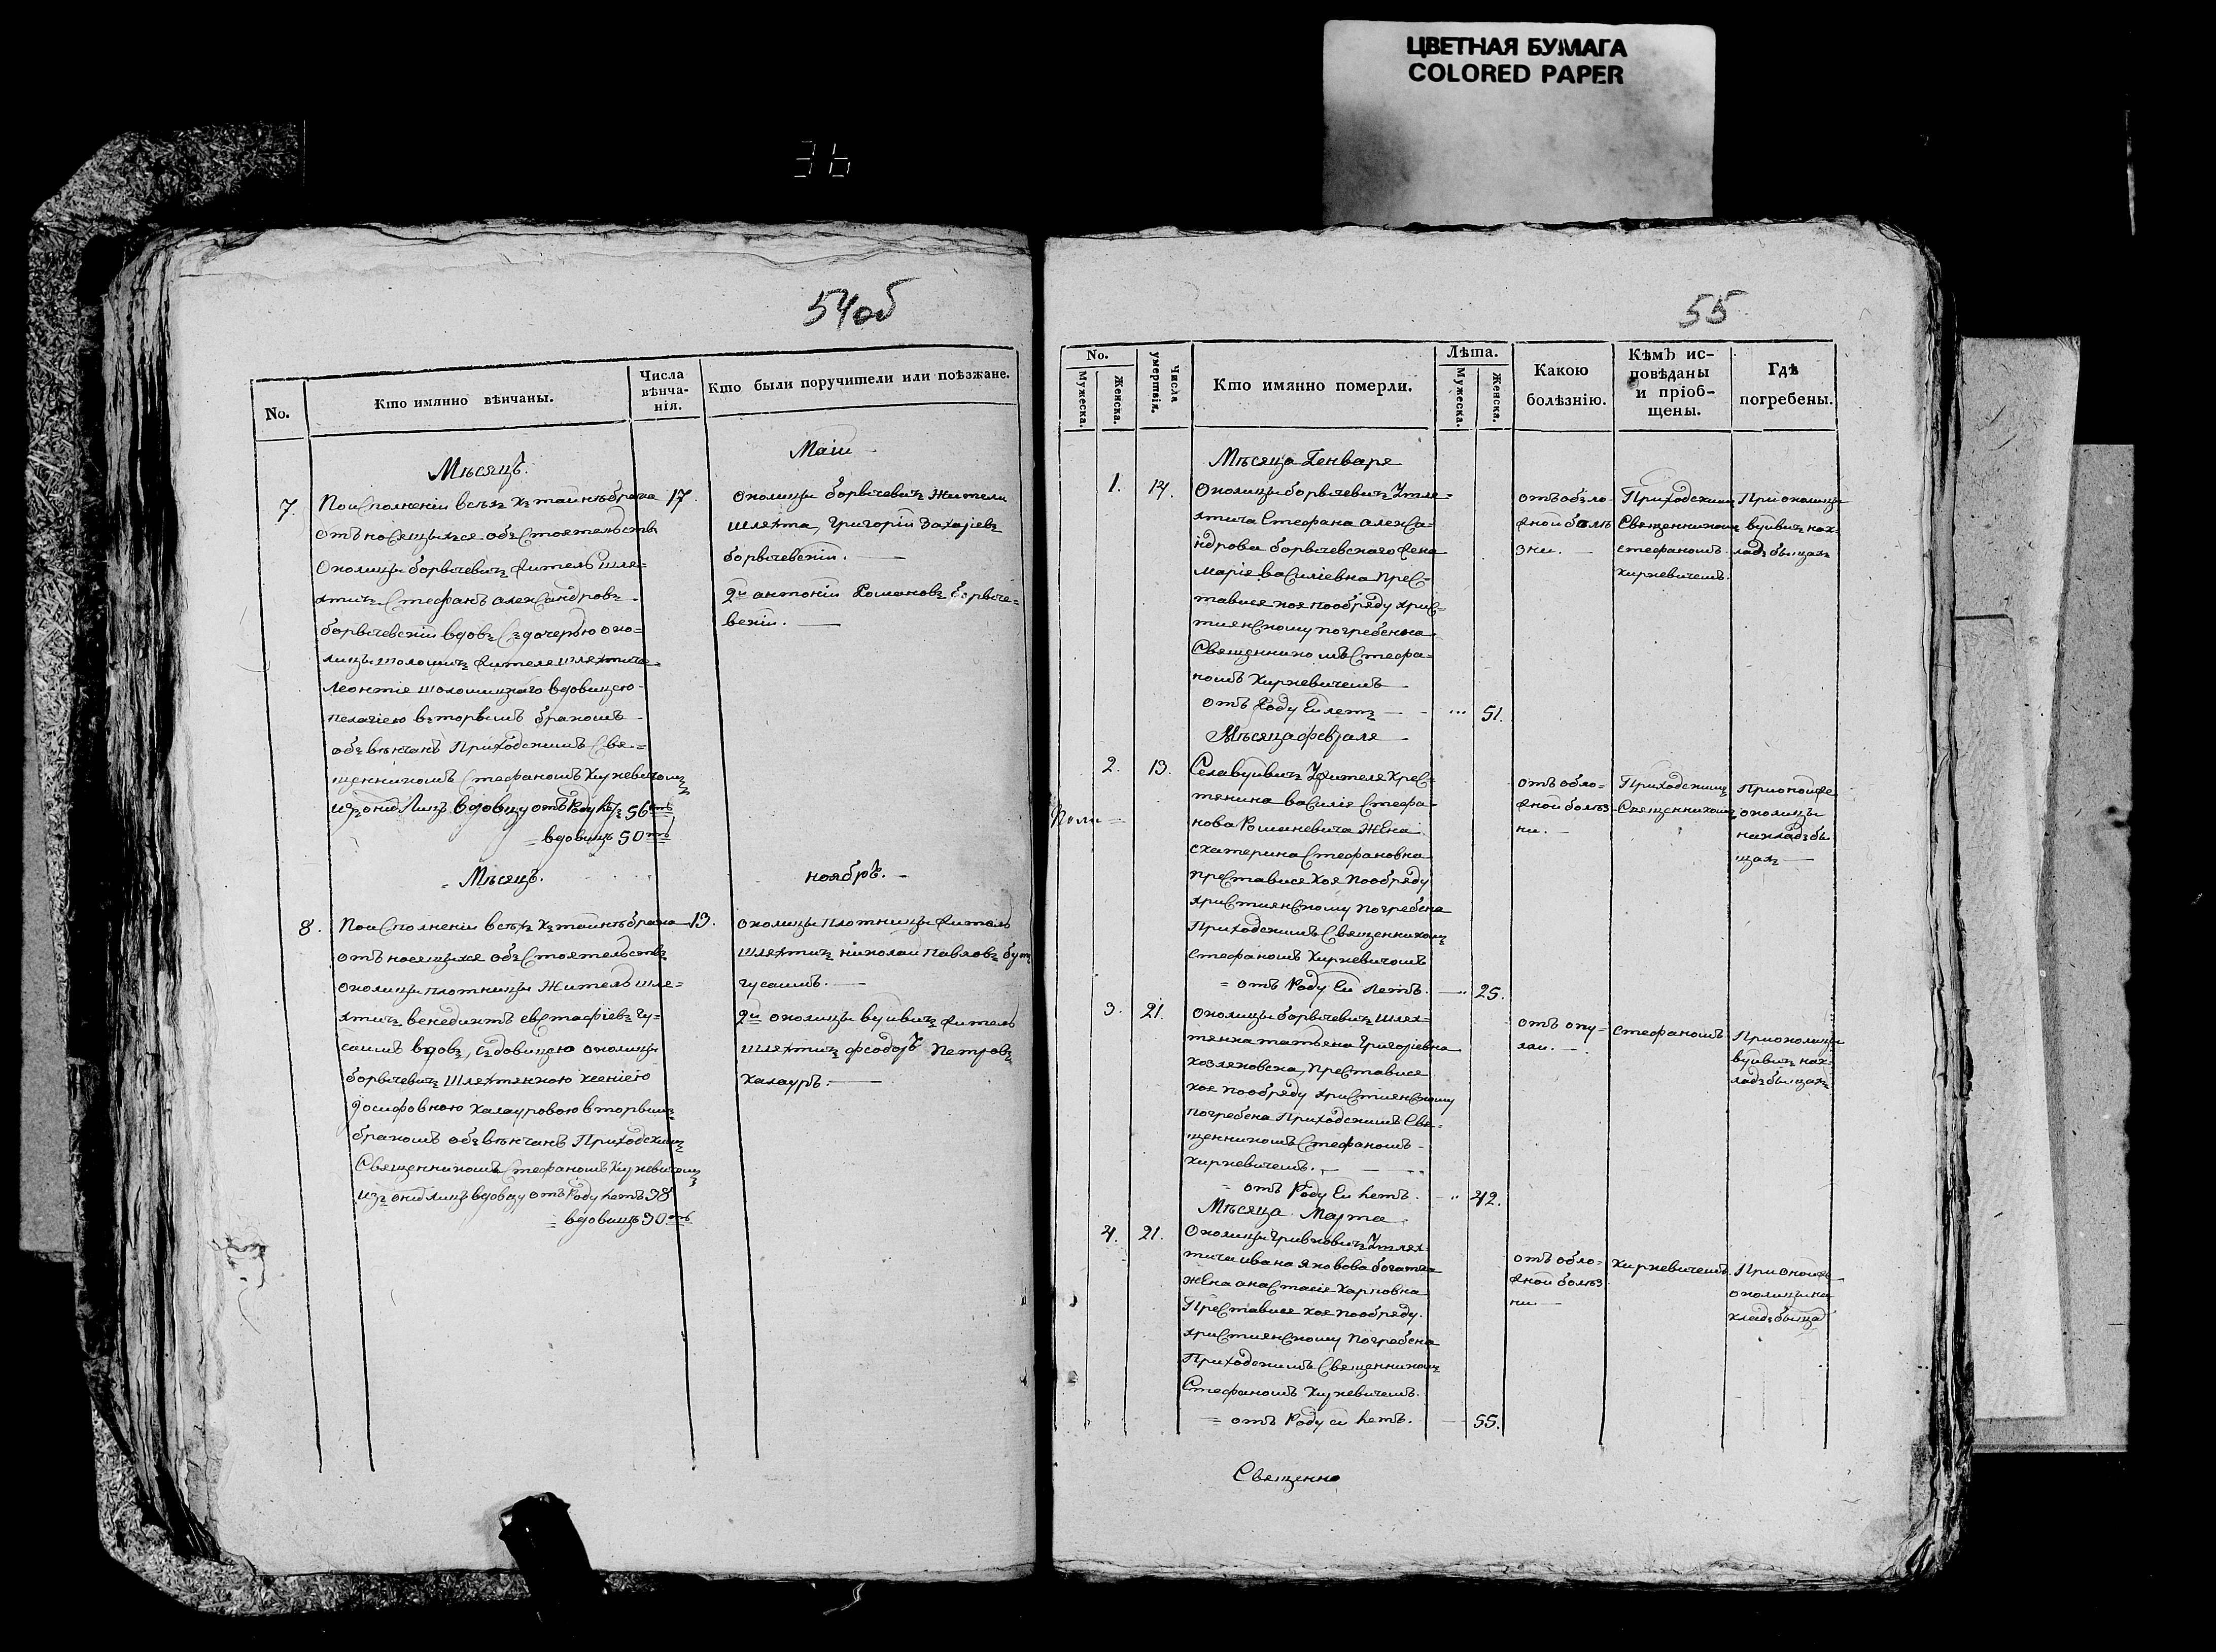 ЦВЕТНАЯ БУМАГА
COLORED PAPER
36
54об
No.
Кто имянно вѣнчаны.
Числа вѣнча-нія.
Кто были поручители или поѣзжане.
Мѣсяцъ.
Маіи
7.
По исполненіи всѣхъ къ таинѣ брака 17.
отъносящихся обстоятельствъ
Околицы борвичевичъ житель шле=
хтичъ Стефанъ александровъ
борвичевскіи вдовъ съ дочерью око=
лицы шоломичъ жителя шляхтича
Леонтіе шоломицкаго вдовицею
пелагіею вторымъ бракомъ
объвѣнчанъ Приходскимъ Свя=
щенникомъ Стефаномъ Хиржевичомъ
изъ онихъ Лицъ вдовцу отъ Роду летъ 56
= вдовицѣ 50
околицы борвичевичъ Жители
шляхта, Григоріи Захаріевъ
борвичевскіи.
2й антоніи Романовъ борвиче=
вскіи.
Мѣсяцъ.
ноябрь.
8.
По исполненіи всѣхъ къ таинѣ брака 13.
отъносящихся обстоятельствъ
околицы плотницы Житель шле=
хтичъ венедиктъ евстафіевъ гу=
саимъ вдовъ, съ вдовицею околицы
борвичевичъ Шляхтянкою ксеніею
Іосифовною Калауровою вторымъ
бракомъ объвѣнчанъ Приходскимъ
Священникомъ Стефаномъ Хиржевичомъ
изъ онихъ лицъ вдовцу отъ Роду летъ 38
= вдовицѣ 30
околицы плотницы житель
шляхтичъ николаи Павловъ
гусаимъ.
2й околицы вуивичъ житель
шляхтичъ феодоръ Петровъ
калауръ.
55
No.
Мужеска.
Женска.
Числа умертвія.
Кто имянно померли.
Лѣта.
Мужеска.
Женска.
Какою болѣзнію.
Кѣмъ ис-повѣданы и пріоб-щены.
Гдѣ погребены.
Мѣсяца Генваря
1.
14.
Околицы борвичевичъ шле=
хтича Стефана алекса=
ндрова борвичевскаго жена
маріе василіевна прес=
тавися коя по обряду хрис=
тиянскому погребенна
Священникомъ Стефа=
номъ Хиржевичемъ
отъ Роду Еи летъ 51.
отъ обло=
жной болѣ
зни.
Приходскимъ
Священникомъ
стефаномъ
хиржевичемъ.
При околицы
вуивичъ на к=
ладъбищахъ
Мѣсяца февраля
2.
13.
Села вуивичъ жителя Хрес=
тянина василіе Стефа=
нова Романевича Жена
екатерина Стефановна
преставися коя по обряду
християнскому погребена
Приходскимъ Священникомъ
стефаномъ Хиржевичомъ
= отъ Роду Еи летъ. 25.
отъ обло=
жной болѣз
ни.
Приходскимъ
Священникомъ
При оной же
околицы
на кладъби
щахъ
3.
21.
Околицы борвичевичъ шлях=
тянка татьяна Григоріевна
козляковска, преставися
коя по обряду християнскому
погребена Приходскимъ Свя=
щенникомъ Стефаномъ
хиржевичемъ.
= отъ Роду Еи летъ. 42.
отъ опу=
хли.
стефаномъ
При околицы
вуивичъ на к=
ладъбищахъ
Мѣсяца Марта
4.
21.
Околицы Гривковичъ шлях=
тича ивана яковова
жена анастасіе Карповна
Преставися коя по обряду
християнскому погребена
Приходскимъ Священникомъ
Стефаномъ Хиржевичемъ.
= отъ Роду еи летъ. 55.
отъ обло=
жной болѣз
ни.
хиржевичемъ.
При оной же
околицы на
кладъбища
Священно